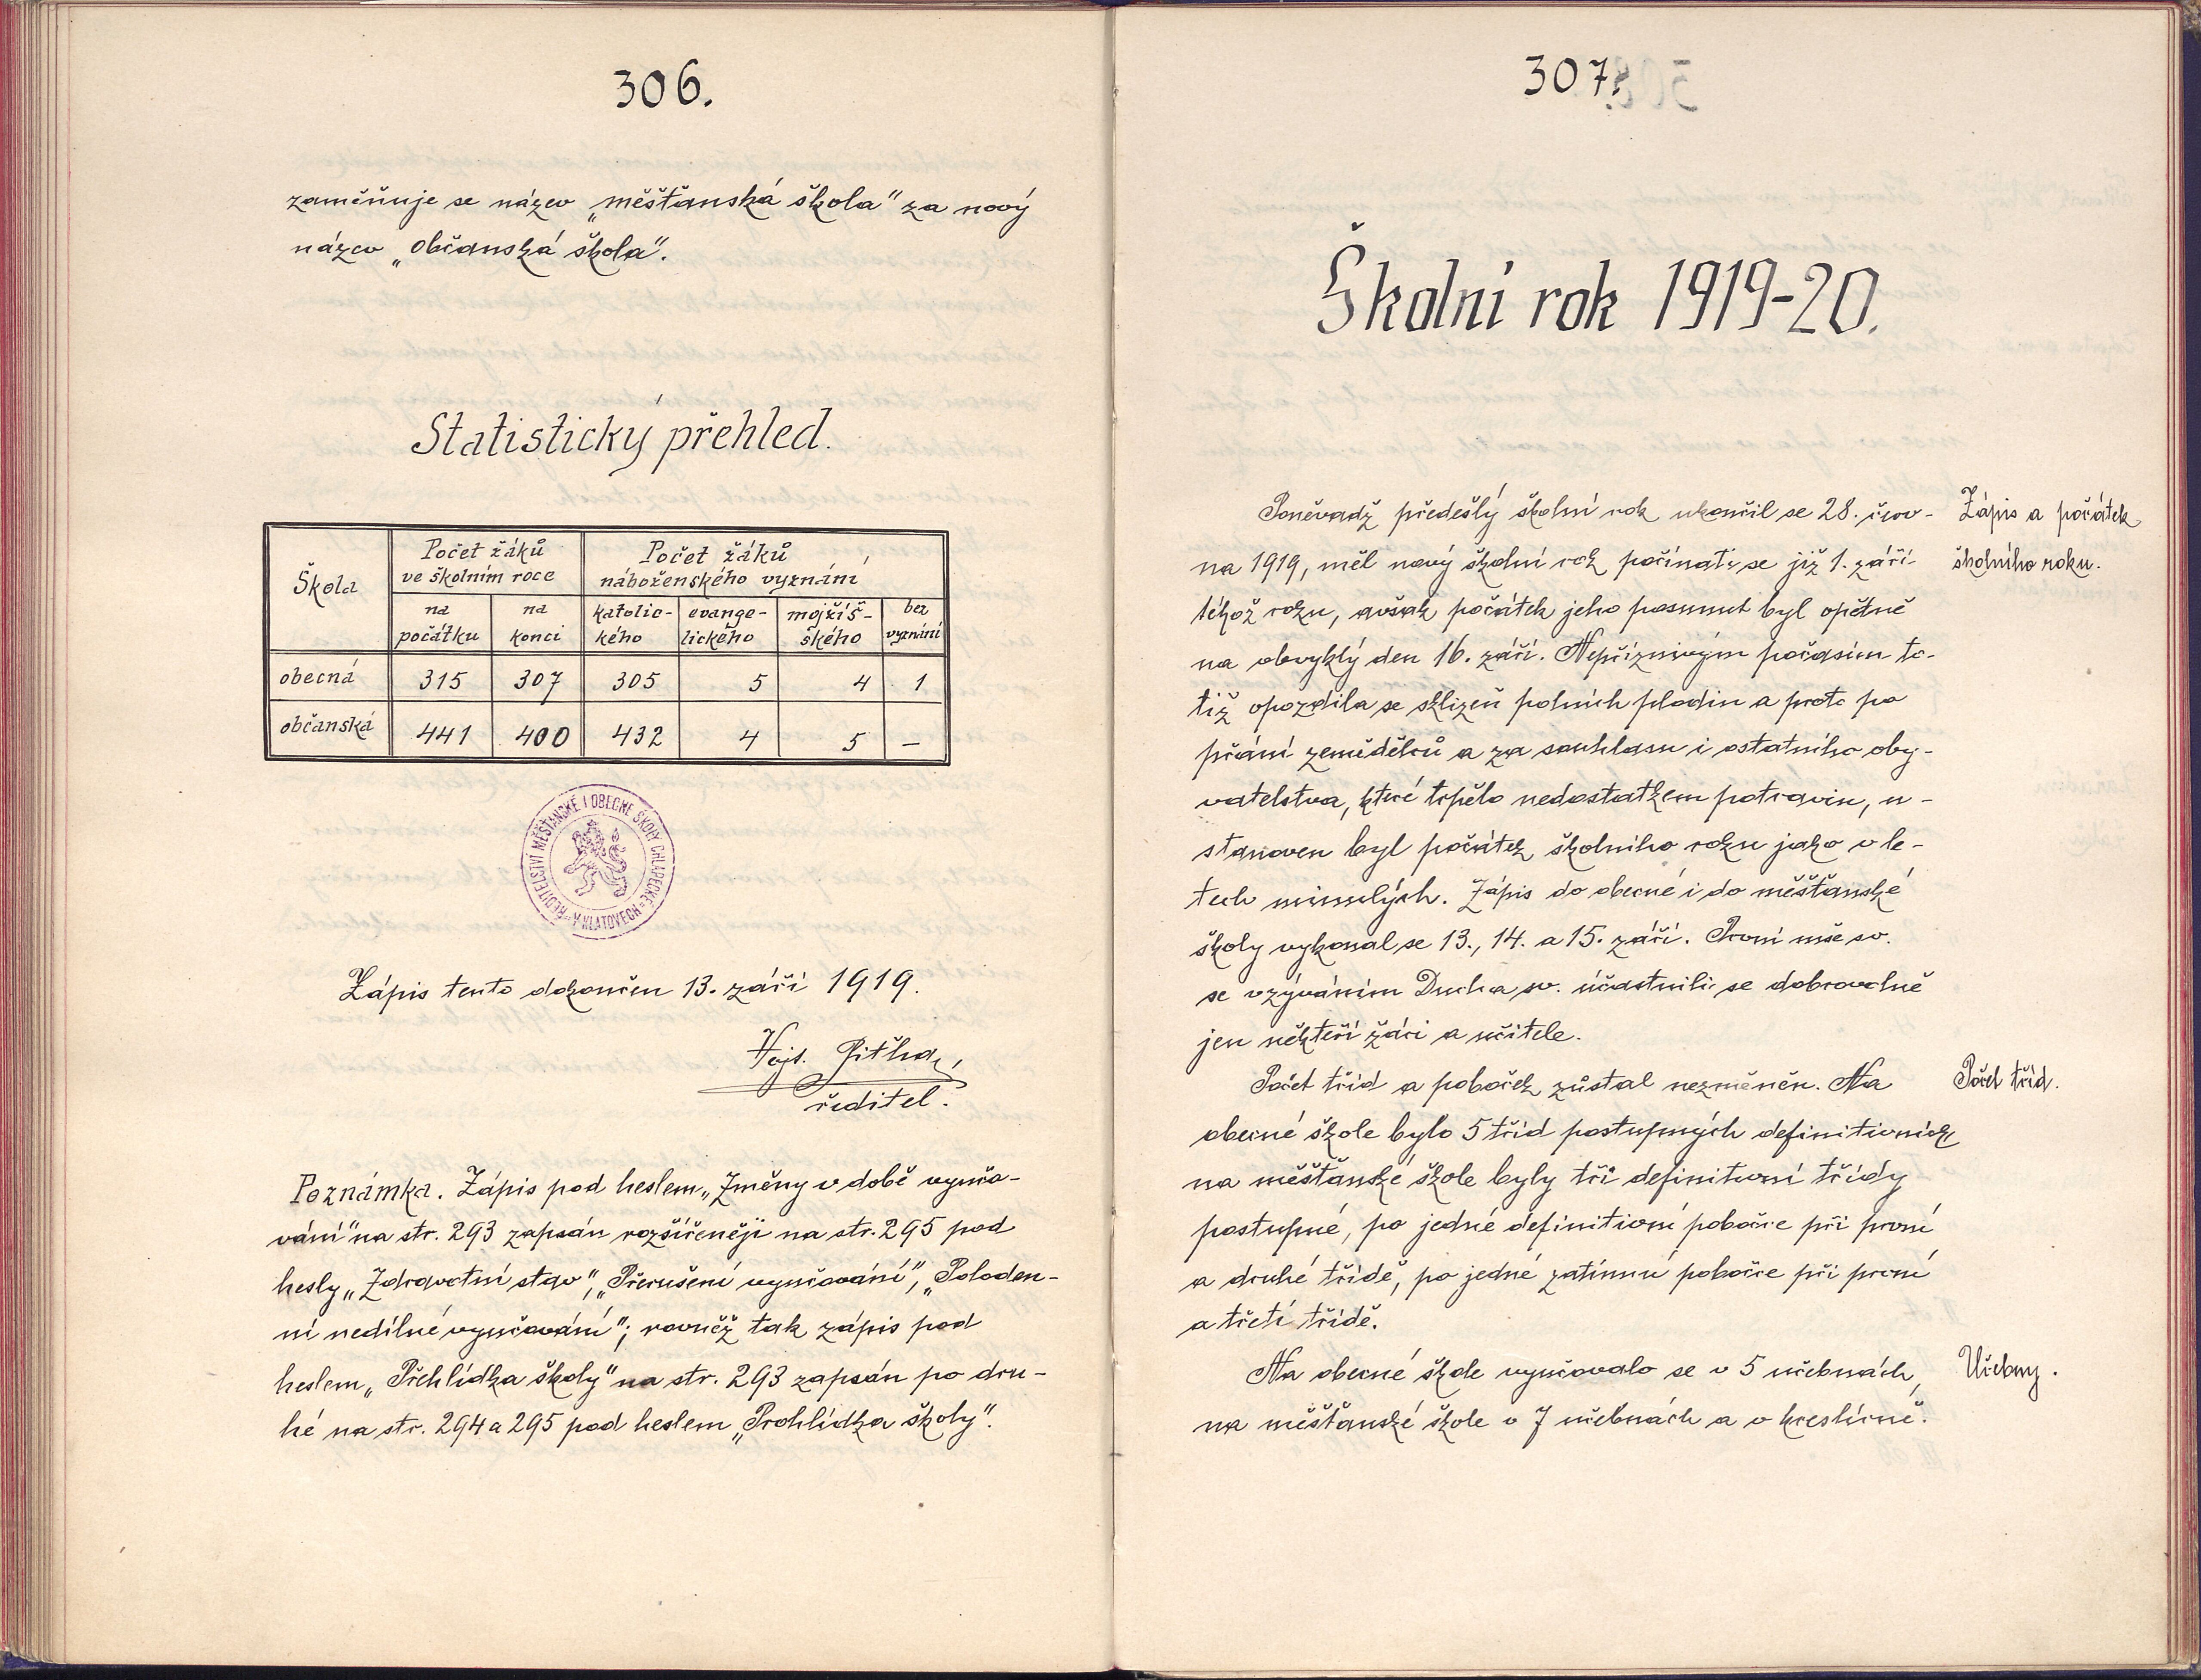 306.
zaměňuje se název „měšťanská škola" za nový
název „občanská škola".
Statistický přehled.
Škola
Počet žáků
ve školním roce
Počet žáků
náboženského vyznání
na
počátku
na
konci
katolic-
kého
evange-
lického
mojžíš-
ského
bez
vyznání
obecná 315 307 305 5 4 1
občanská 441 400 432 4 5 —
ŘEDITELSTVÍ MĚŠŤANSKÉ I OBECNÉ ŠKOLY CHLAPECKÉ V KLATOVECH
Zápis tento dokončen 13. září 1919.
Vojt. Pitha,
ředitel.
Poznámka. Zápis pod heslem „Změny v době vyučo-
vání" na str. 293 zapsán rozšířeněji na str. 295 pod
hesly „Zdravotní stav", „Přerušení vyučování", „Poloden-
ní nedílné vyučování"; rovněž tak zápis pod
heslem „Přehlídka školy" na str. 293 zapsán po dru-
hé na str. 294 a 295 pod heslem „Prohlídka školy".
307.
Školní rok 1919-20.
Poněvadž předešlý školní rok ukončil se 28. červ-
na 1919, měl nový školní rok počínati se již 1. září
téhož roku, avšak počátek jeho posunut byl opětně
na obvyklý den 16. září. Nepříznivým počasím to-
tiž opozdila se sklizeň polních plodin a proto po
přání zemědělců a za souhlasu i ostatního oby-
vatelstva, které trpělo nedostatkem potravin, u-
stanoven byl počátek školního roku jako v le-
tech minulých. Zápis do obecné i do měšťanské
školy vykonal se 13., 14. a 15. září. První mše sv.
se vzýváním Ducha sv. účastnili se dobrovolně
jen někteří žáci a učitelé.
Zápis a počátek
školního roku.
Počet tříd a poboček zůstal nezměněn. Na
obecné škole bylo 5 tříd postupných definitivních
na měšťanské škole byly tři definitivní třídy
postupné, po jedné definitivní pobočce při první
a druhé třídě, po jedné zatímní pobočce při první
a třetí třídě.
Počet tříd.
Na obecné škole vyučovalo se v 5 učebnách,
na měšťanské škole v 7 učebnách a v kreslírně.
Učebny.